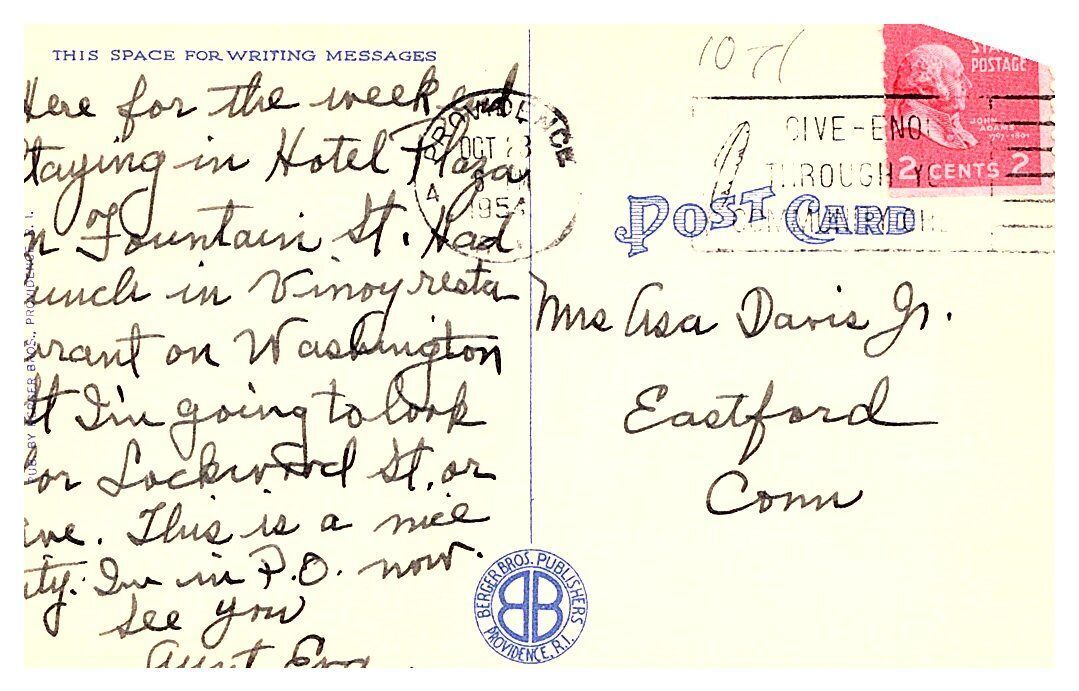 THIS SPACE FOR WRITING MESSAGES
Here for the week end
Staying in Hotel Plaza
on Fountain St. Had
Lunch in Vinoy resta
urant on Washington
St I'm going to look
for Lockwood St. or
ave. This is a nice
city. Im in P.O. now.
See you
Aunt Eva
PUB. BY BERGER BROS., PROVIDENCE, R. I.
PROVIDENCE
OCT 23
1954
10
POSTAGE
JOHN
ADAMS
1797-1801
2 CENTS 2
GIVE-ENO
THROUGH YO
POST CARD
Mrs Asa Davis Jr.
Eastford
Conn
BERGER BROS. PUBLISHERS
BB
PROVIDENCE, R.I.